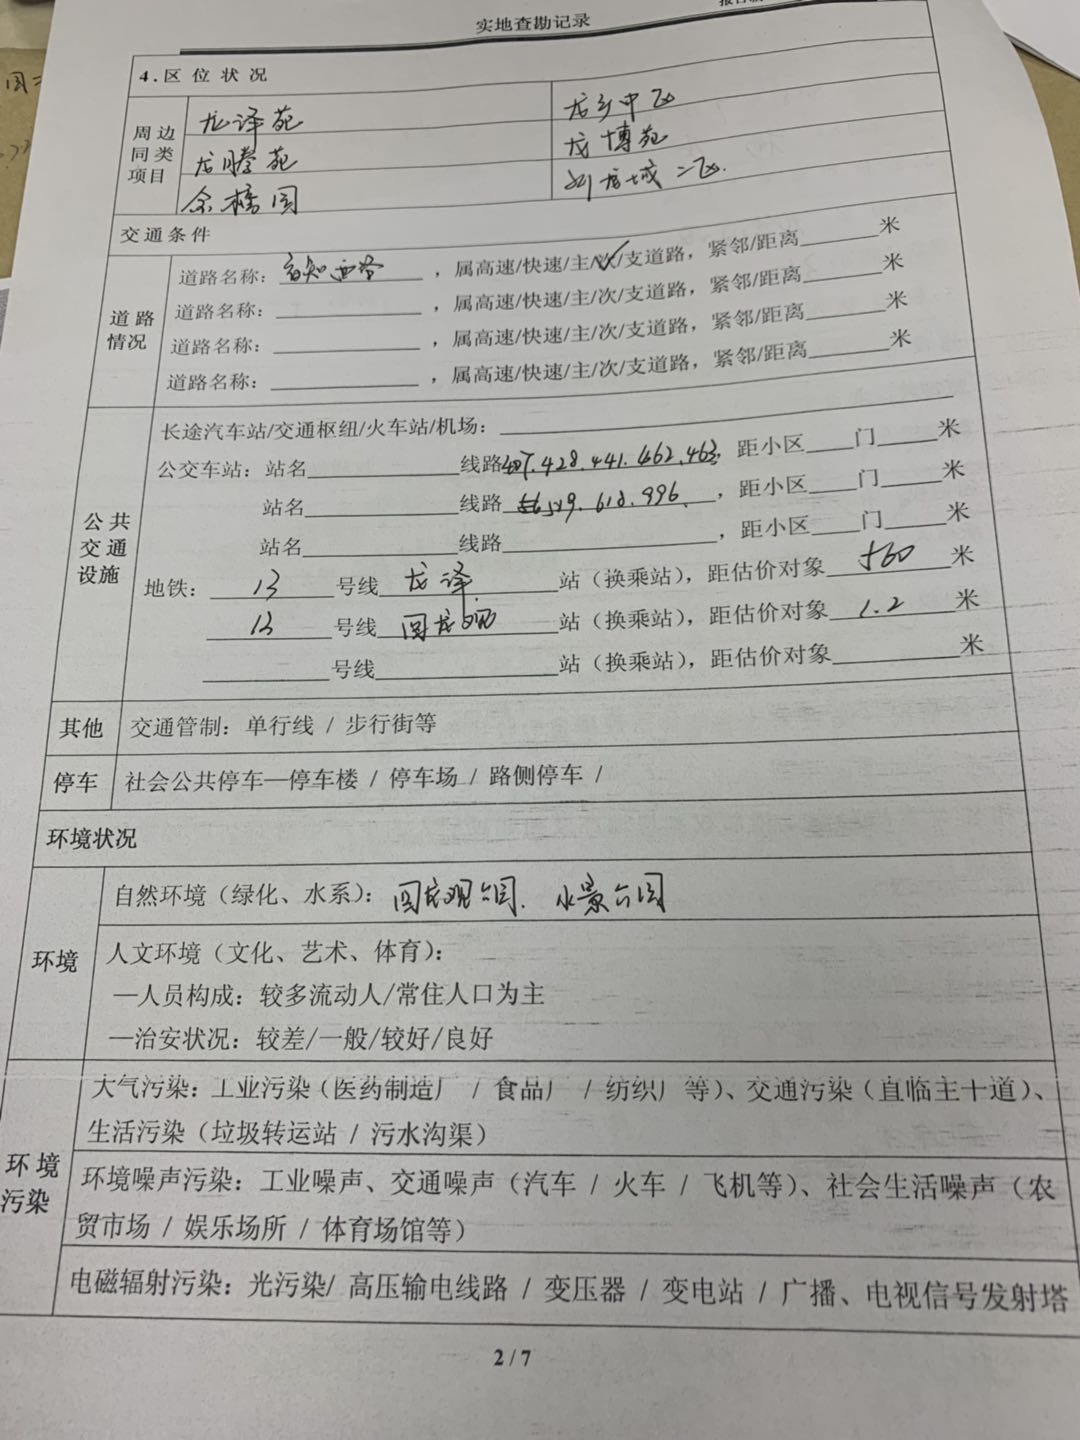 实地查勘记录
4.区 位 状 况
周边同类项目
龙泽苑
龙乡中区
龙腾苑
龙博苑
龙城二区
交通条件
道路情况
道路名称：，属高速/快速/主/次/支道路，紧邻/距离______米
道路名称：__________，属高速/快速/主/次/支道路，紧邻/距离______米
道路名称：__________，属高速/快速/主/次/支道路，紧邻/距离______米
道路名称：__________，属高速/快速/主/次/支道路，紧邻/距离______米
公共交通设施
长途汽车站/交通枢纽/火车站/机场：__________
公交车站：站名__________线路 428.441.462.463，距小区____门____米
站名__________线路 519.618.996，距小区____门____米
站名__________线路__________，距小区____门____米
地铁：13号线龙泽站（换乘站），距估价对象560米
13号线回龙观站（换乘站），距估价对象1.2米
______号线__________站（换乘站），距估价对象______米
其他
交通管制：单行线 / 步行街等
停车
社会公共停车—停车楼 / 停车场 / 路侧停车 /
环境状况
环境
自然环境（绿化、水系）：回龙观公园. 水景公园
人文环境（文化、艺术、体育）：
—人员构成：较多流动人/常住人口为主
—治安状况：较差/一般/较好/良好
环境污染
大气污染：工业污染（医药制造厂 / 食品厂 / 纺织厂等）、交通污染（直临主干道）、
生活污染（垃圾转运站 / 污水沟渠）
环境噪声污染：工业噪声、交通噪声（汽车 / 火车 / 飞机等）、社会生活噪声（农
贸市场 / 娱乐场所 / 体育场馆等）
电磁辐射污染：光污染/ 高压输电线路 / 变压器 / 变电站 / 广播、电视信号发射塔
2 / 7